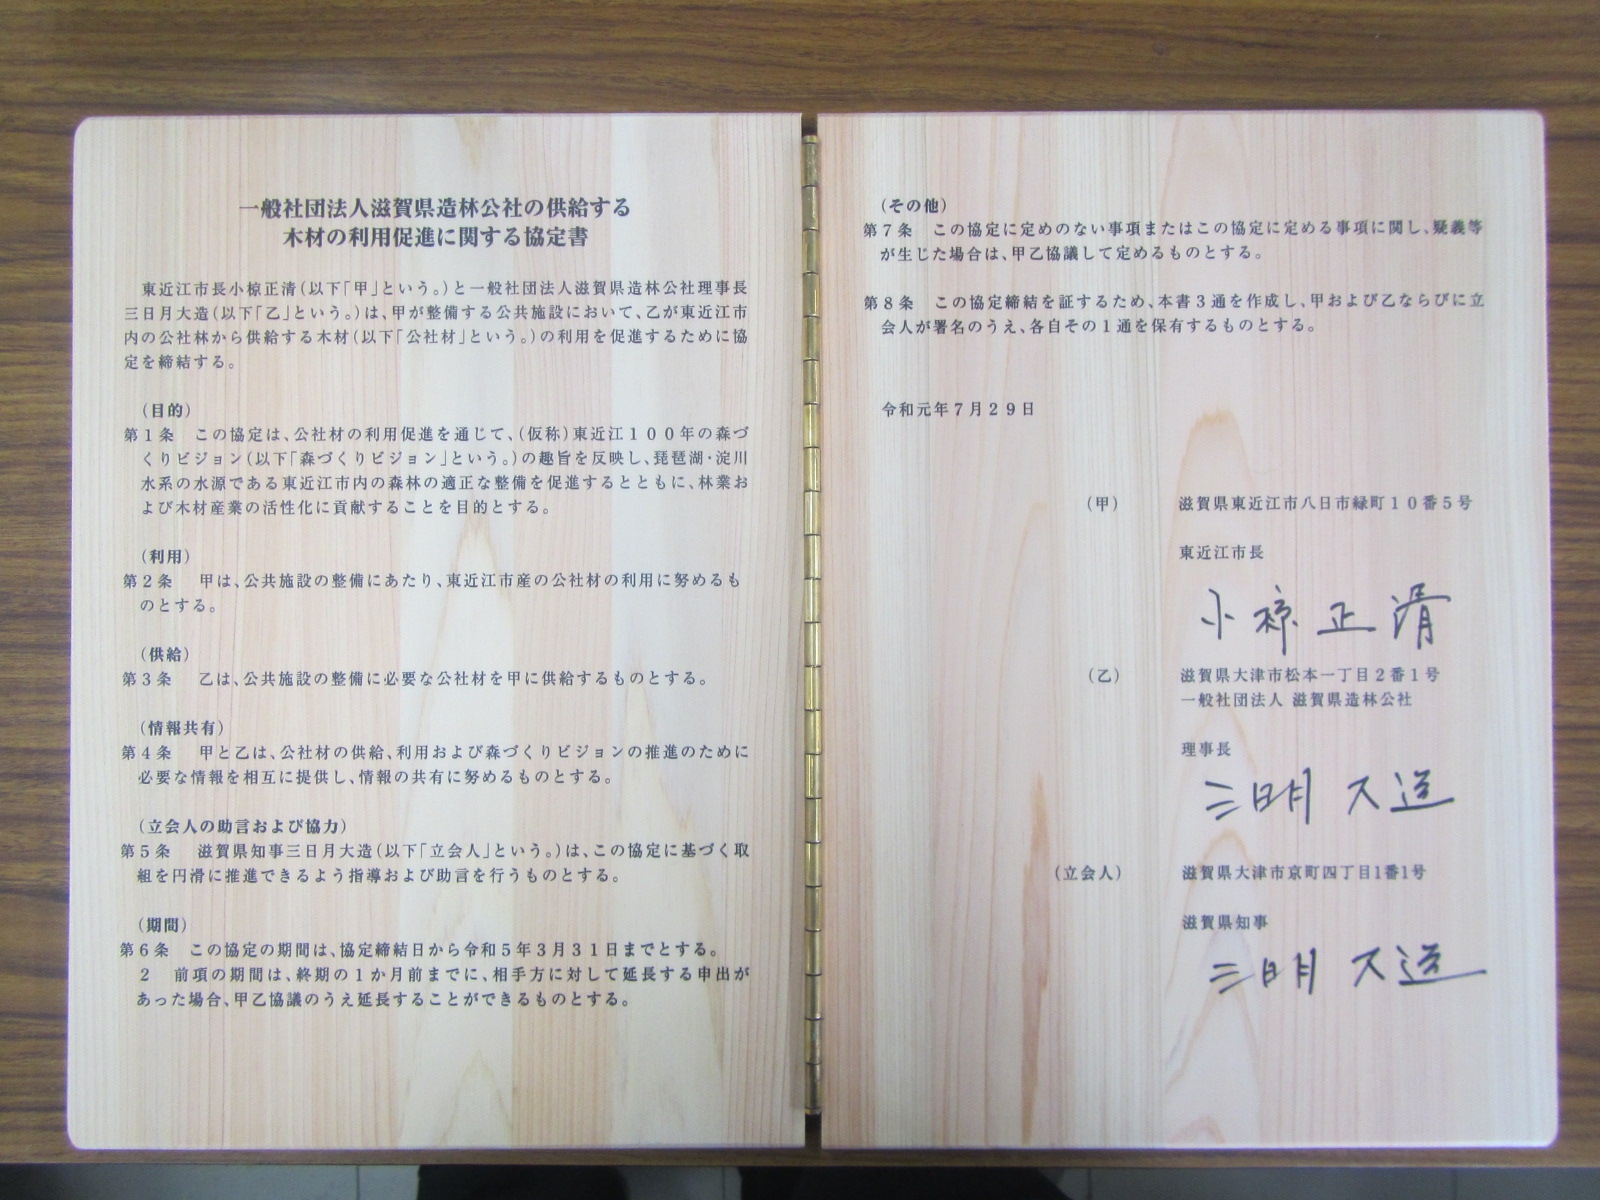 一般社団法人滋賀県造林公社の供給する
木材の利用促進に関する協定書
東近江市長小椋正清（以下「甲」という。）と一般社団法人滋賀県造林公社理事長
三日月大造（以下「乙」という。）は、甲が整備する公共施設において、乙が東近江市
内の公社林から供給する木材（以下「公社材」という。）の利用を促進するために協
定を締結する。
（目的）
第１条　この協定は、公社材の利用促進を通じて、（仮称）東近江１００年の森づ
くりビジョン（以下「森づくりビジョン」という。）の趣旨を反映し、琵琶湖・淀川
水系の水源である東近江市内の森林の適正な整備を促進するとともに、林業お
よび木材産業の活性化に貢献することを目的とする。
（利用）
第２条　甲は、公共施設の整備にあたり、東近江市産の公社材の利用に努めるも
のとする。
（供給）
第３条　乙は、公共施設の整備に必要な公社材を甲に供給するものとする。
（情報共有）
第４条　甲と乙は、公社材の供給、利用および森づくりビジョンの推進のために
必要な情報を相互に提供し、情報の共有に努めるものとする。
（立会人の助言および協力）
第５条　滋賀県知事三日月大造（以下「立会人」という。）は、この協定に基づく取
組を円滑に推進できるよう指導および助言を行うものとする。
（期間）
第６条　この協定の期間は、協定締結日から令和５年３月３１日までとする。
２　前項の期間は、終期の１か月前までに、相手方に対して延長する申出が
あった場合、甲乙協議のうえ延長することができるものとする。
（その他）
第７条　この協定に定めのない事項またはこの協定に定める事項に関し、疑義等
が生じた場合は、甲乙協議して定めるものとする。
第８条　この協定締結を証するため、本書３通を作成し、甲および乙ならびに立
会人が署名のうえ、各自その１通を保有するものとする。
令和元年７月２９日
（甲）　滋賀県東近江市八日市緑町１０番５号
東近江市長
小椋正清
（乙）　滋賀県大津市松本一丁目２番１号
一般社団法人 滋賀県造林公社
理事長
三日月 大造
（立会人）　滋賀県大津市京町四丁目1番1号
滋賀県知事
三日月 大造